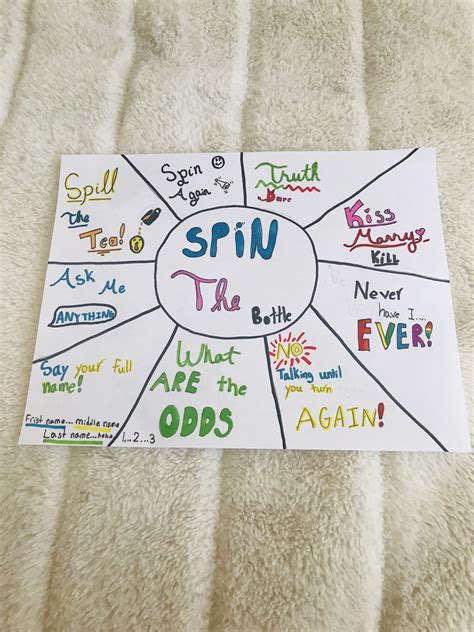 SPiN
The
Bottle
Spill
the
Tea!
Spin
Again
Truth
Dare
Kiss
Marry
KiLL
Never
have I....
EVER!
NO
Talking until
you turn
AGAIN!
What
ARE the
ODDS
1...2...3
Say your full
name!
Frist name... middle name
Last name...haha
Ask Me
ANYTHING